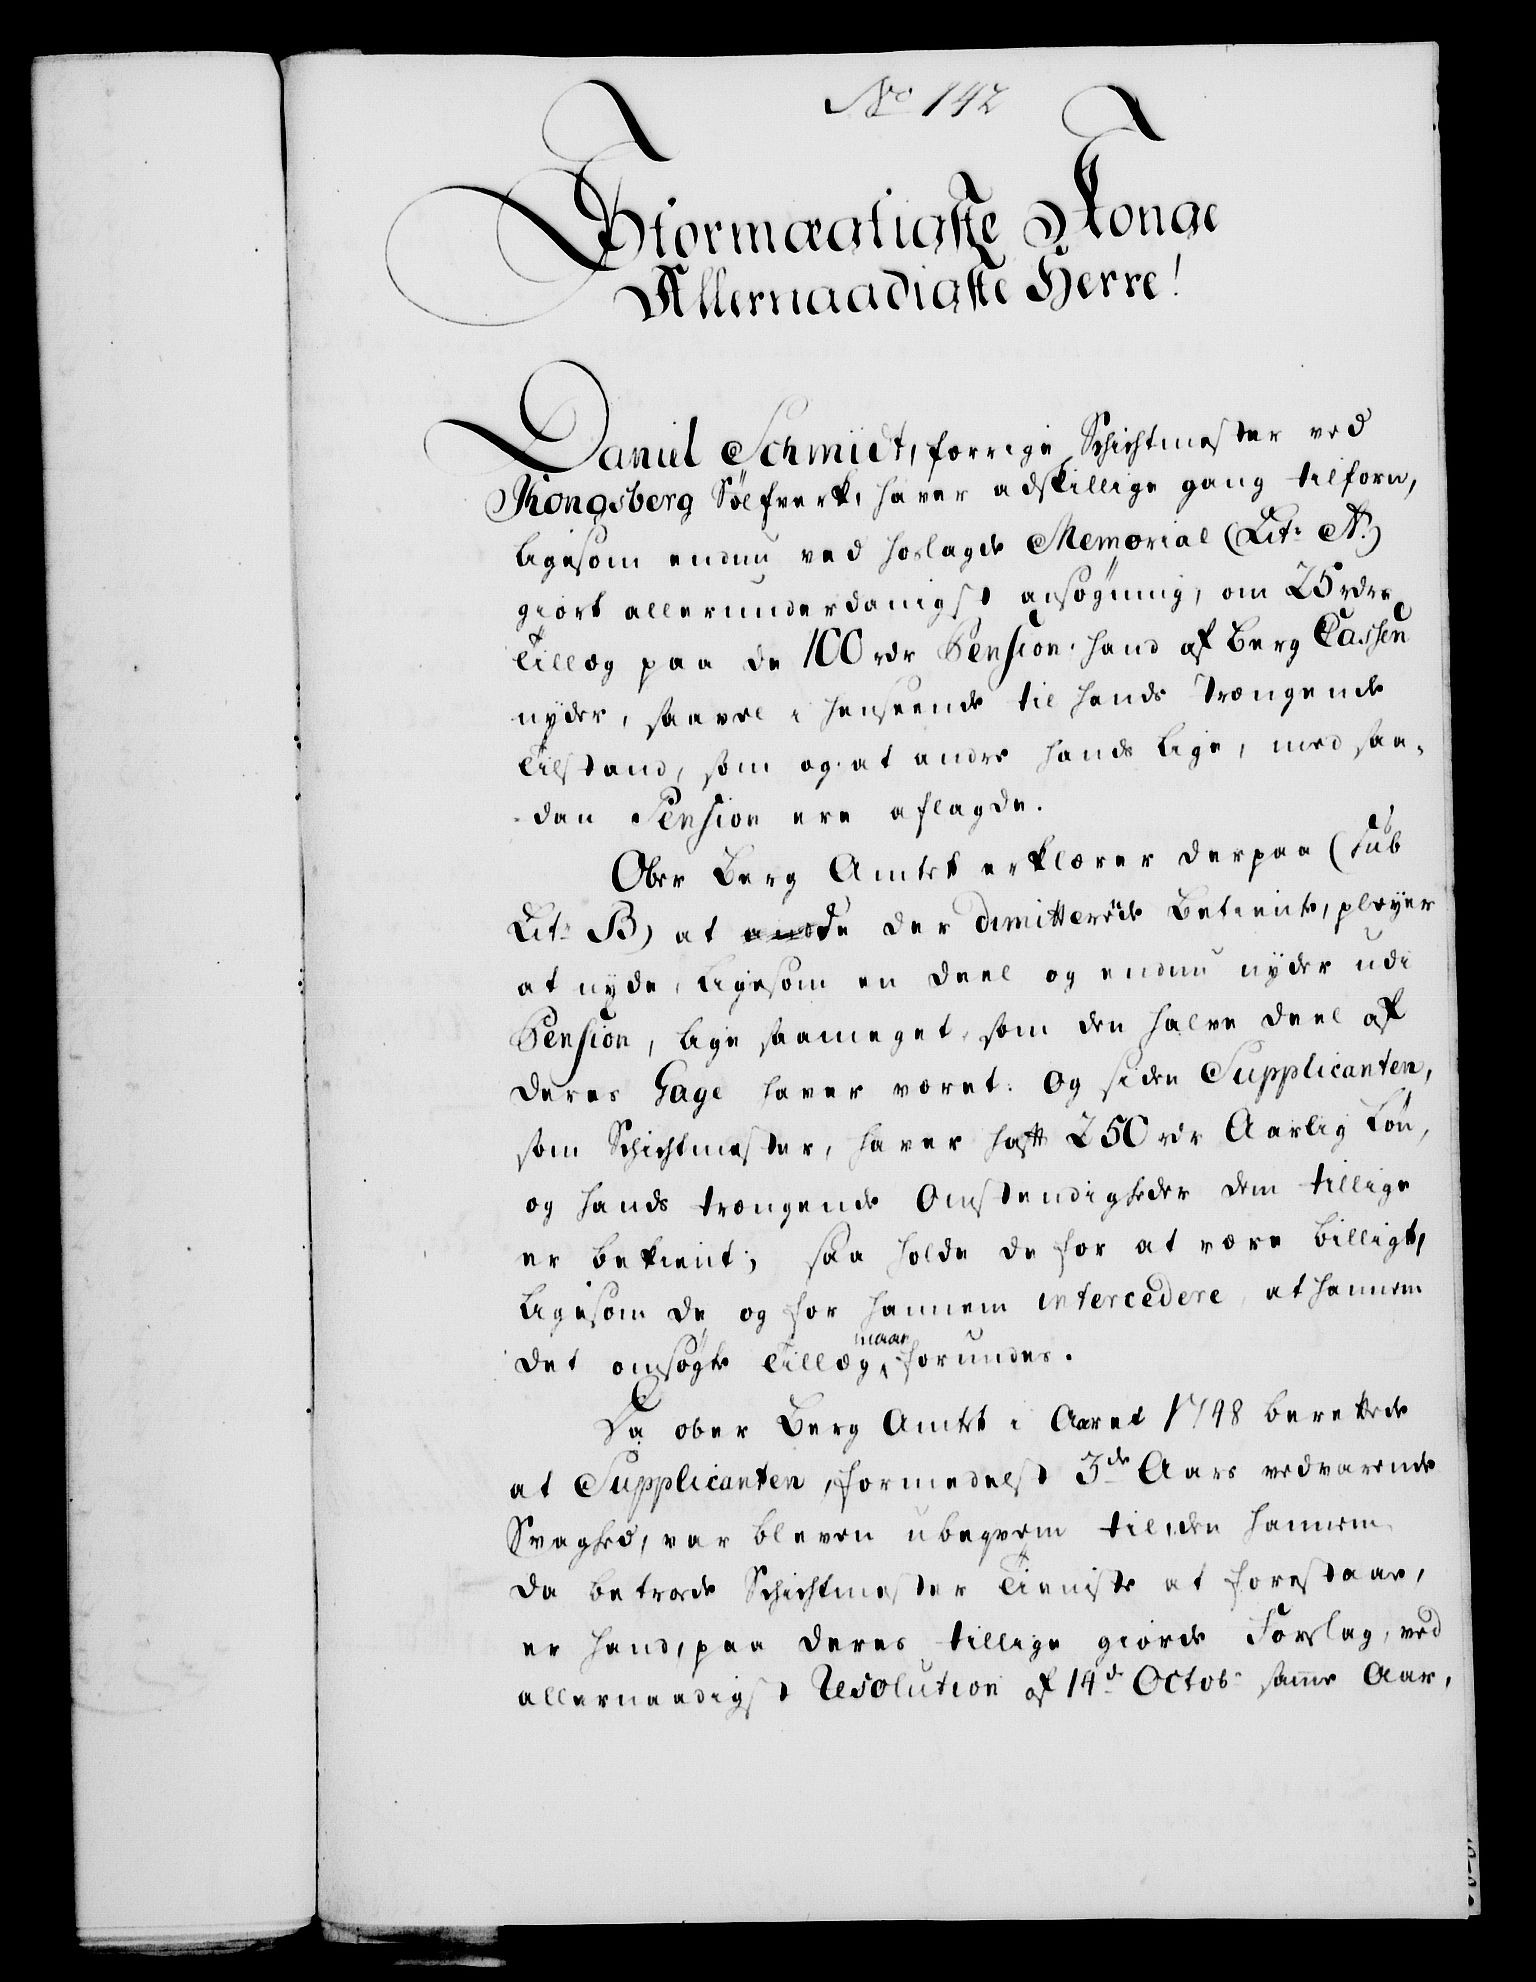 No 142
Stormægtigste Konge
Allernaadigste Herre!
Daniel Schmidt, forrige Schichtmester ved
Kongsberg Sölfverk, haver adskillige gang tilforn,
ligesom endnu ved hoslagde Memorial (Lit: A.)
giort allerunderdanigst ansögning, om 25 rdrs
Tillæg paa de 100 rdr Pension hand af Berg Cassen
nyder, saavel i henseende til hands trængende
Tilstand, som og at andre hands lige, med saa-
dan Pension ere aflagde.
Ober Berg Amtet erklærer derpaa (sub
Lit: B) at der dimitterede Betiente, pleyer
at nyde, ligesom en deel og endnu nyder udi
Pension, lige saameget, som den halve deel af
deres Gage haver været. Og siden Supplicanten,
som Schichtmester, haver haft 250 rdr Aarlig Lön,
og hands trængende Omstendigheder dem tillige
er bekient; saa holde de for at være billigt,
ligesom de og for hannem intercedere, at hannem
det omsögte Tillæg maae forundes.
Da ober Berg Amtet i Aaret 1748 berettede
at Supplicanten, formedelst 3de Aars vedvarende
Svaghed, var bleven ubeqvem til, den hannem
da betroede Schichtmester Tieniste at forestaae,
er hand, paa deres tillige giorde Forslag, ved
allernaadigst Resolution af 14de Octob: samme Aar,